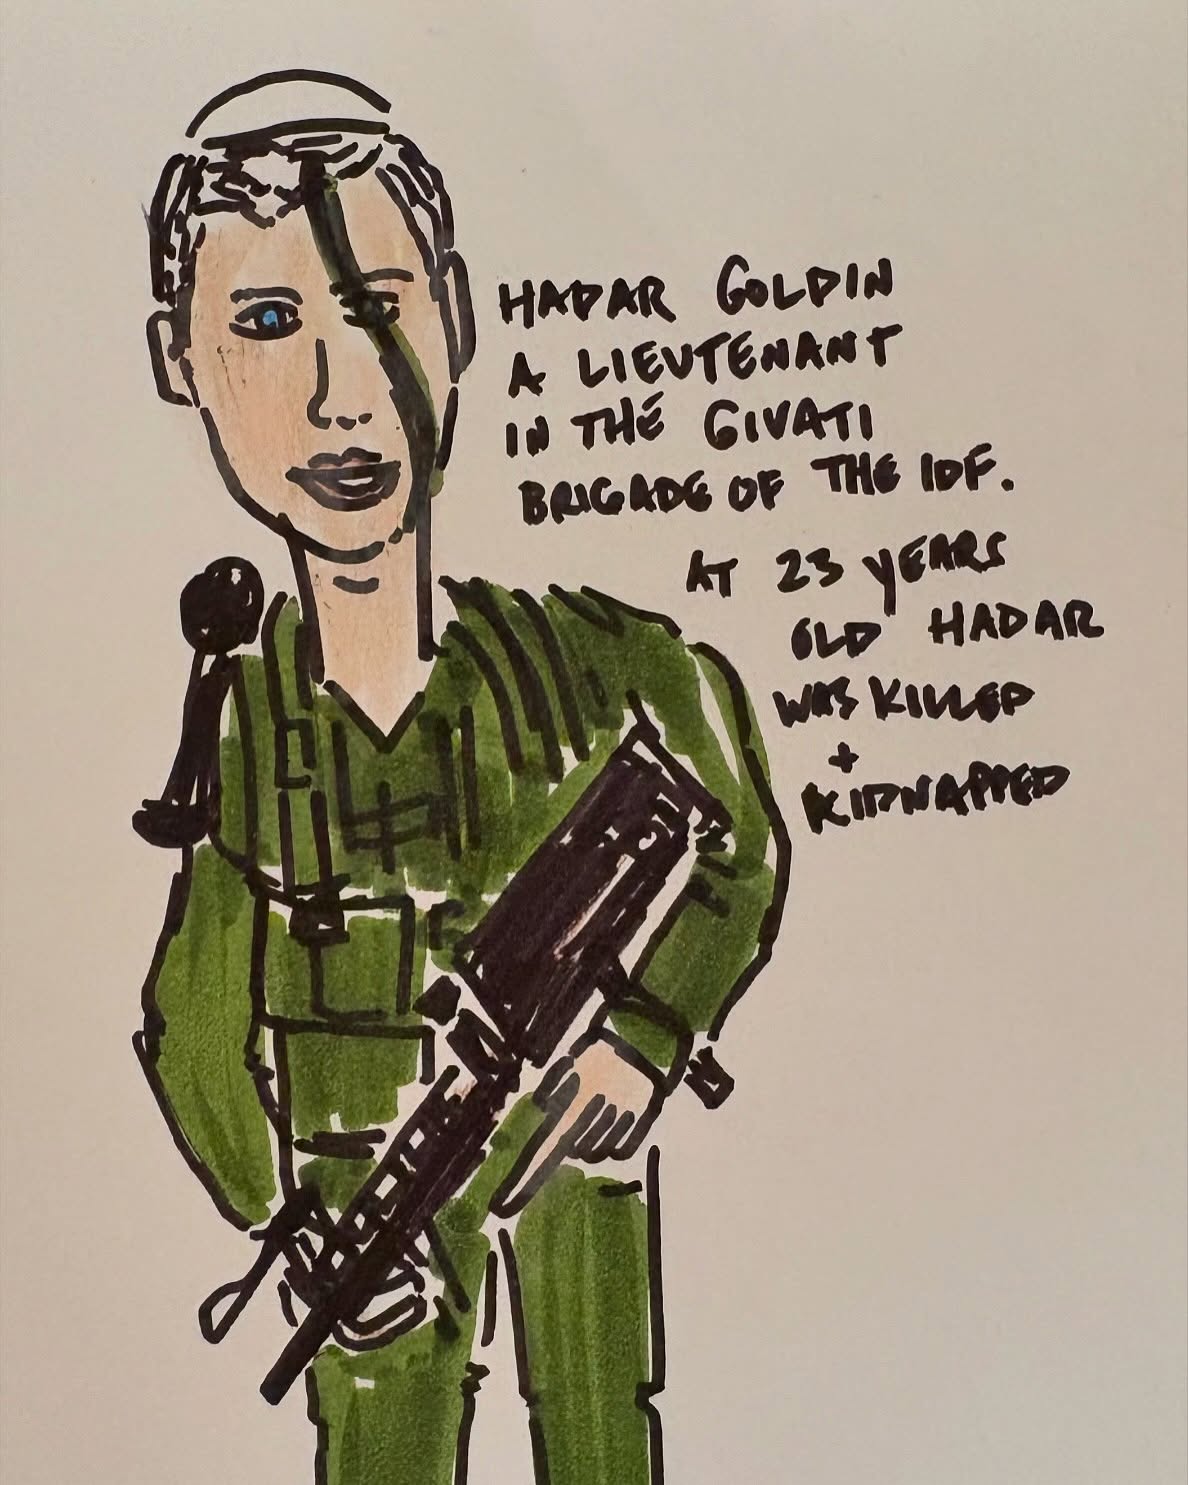 HADAR GOLDIN
A LIEUTENANT
IN THE GIVATI
BRIGADE OF THE IDF.
AT 23 YEARS
OLD HADAR
WAS KILLED
+
KIDNAPPED